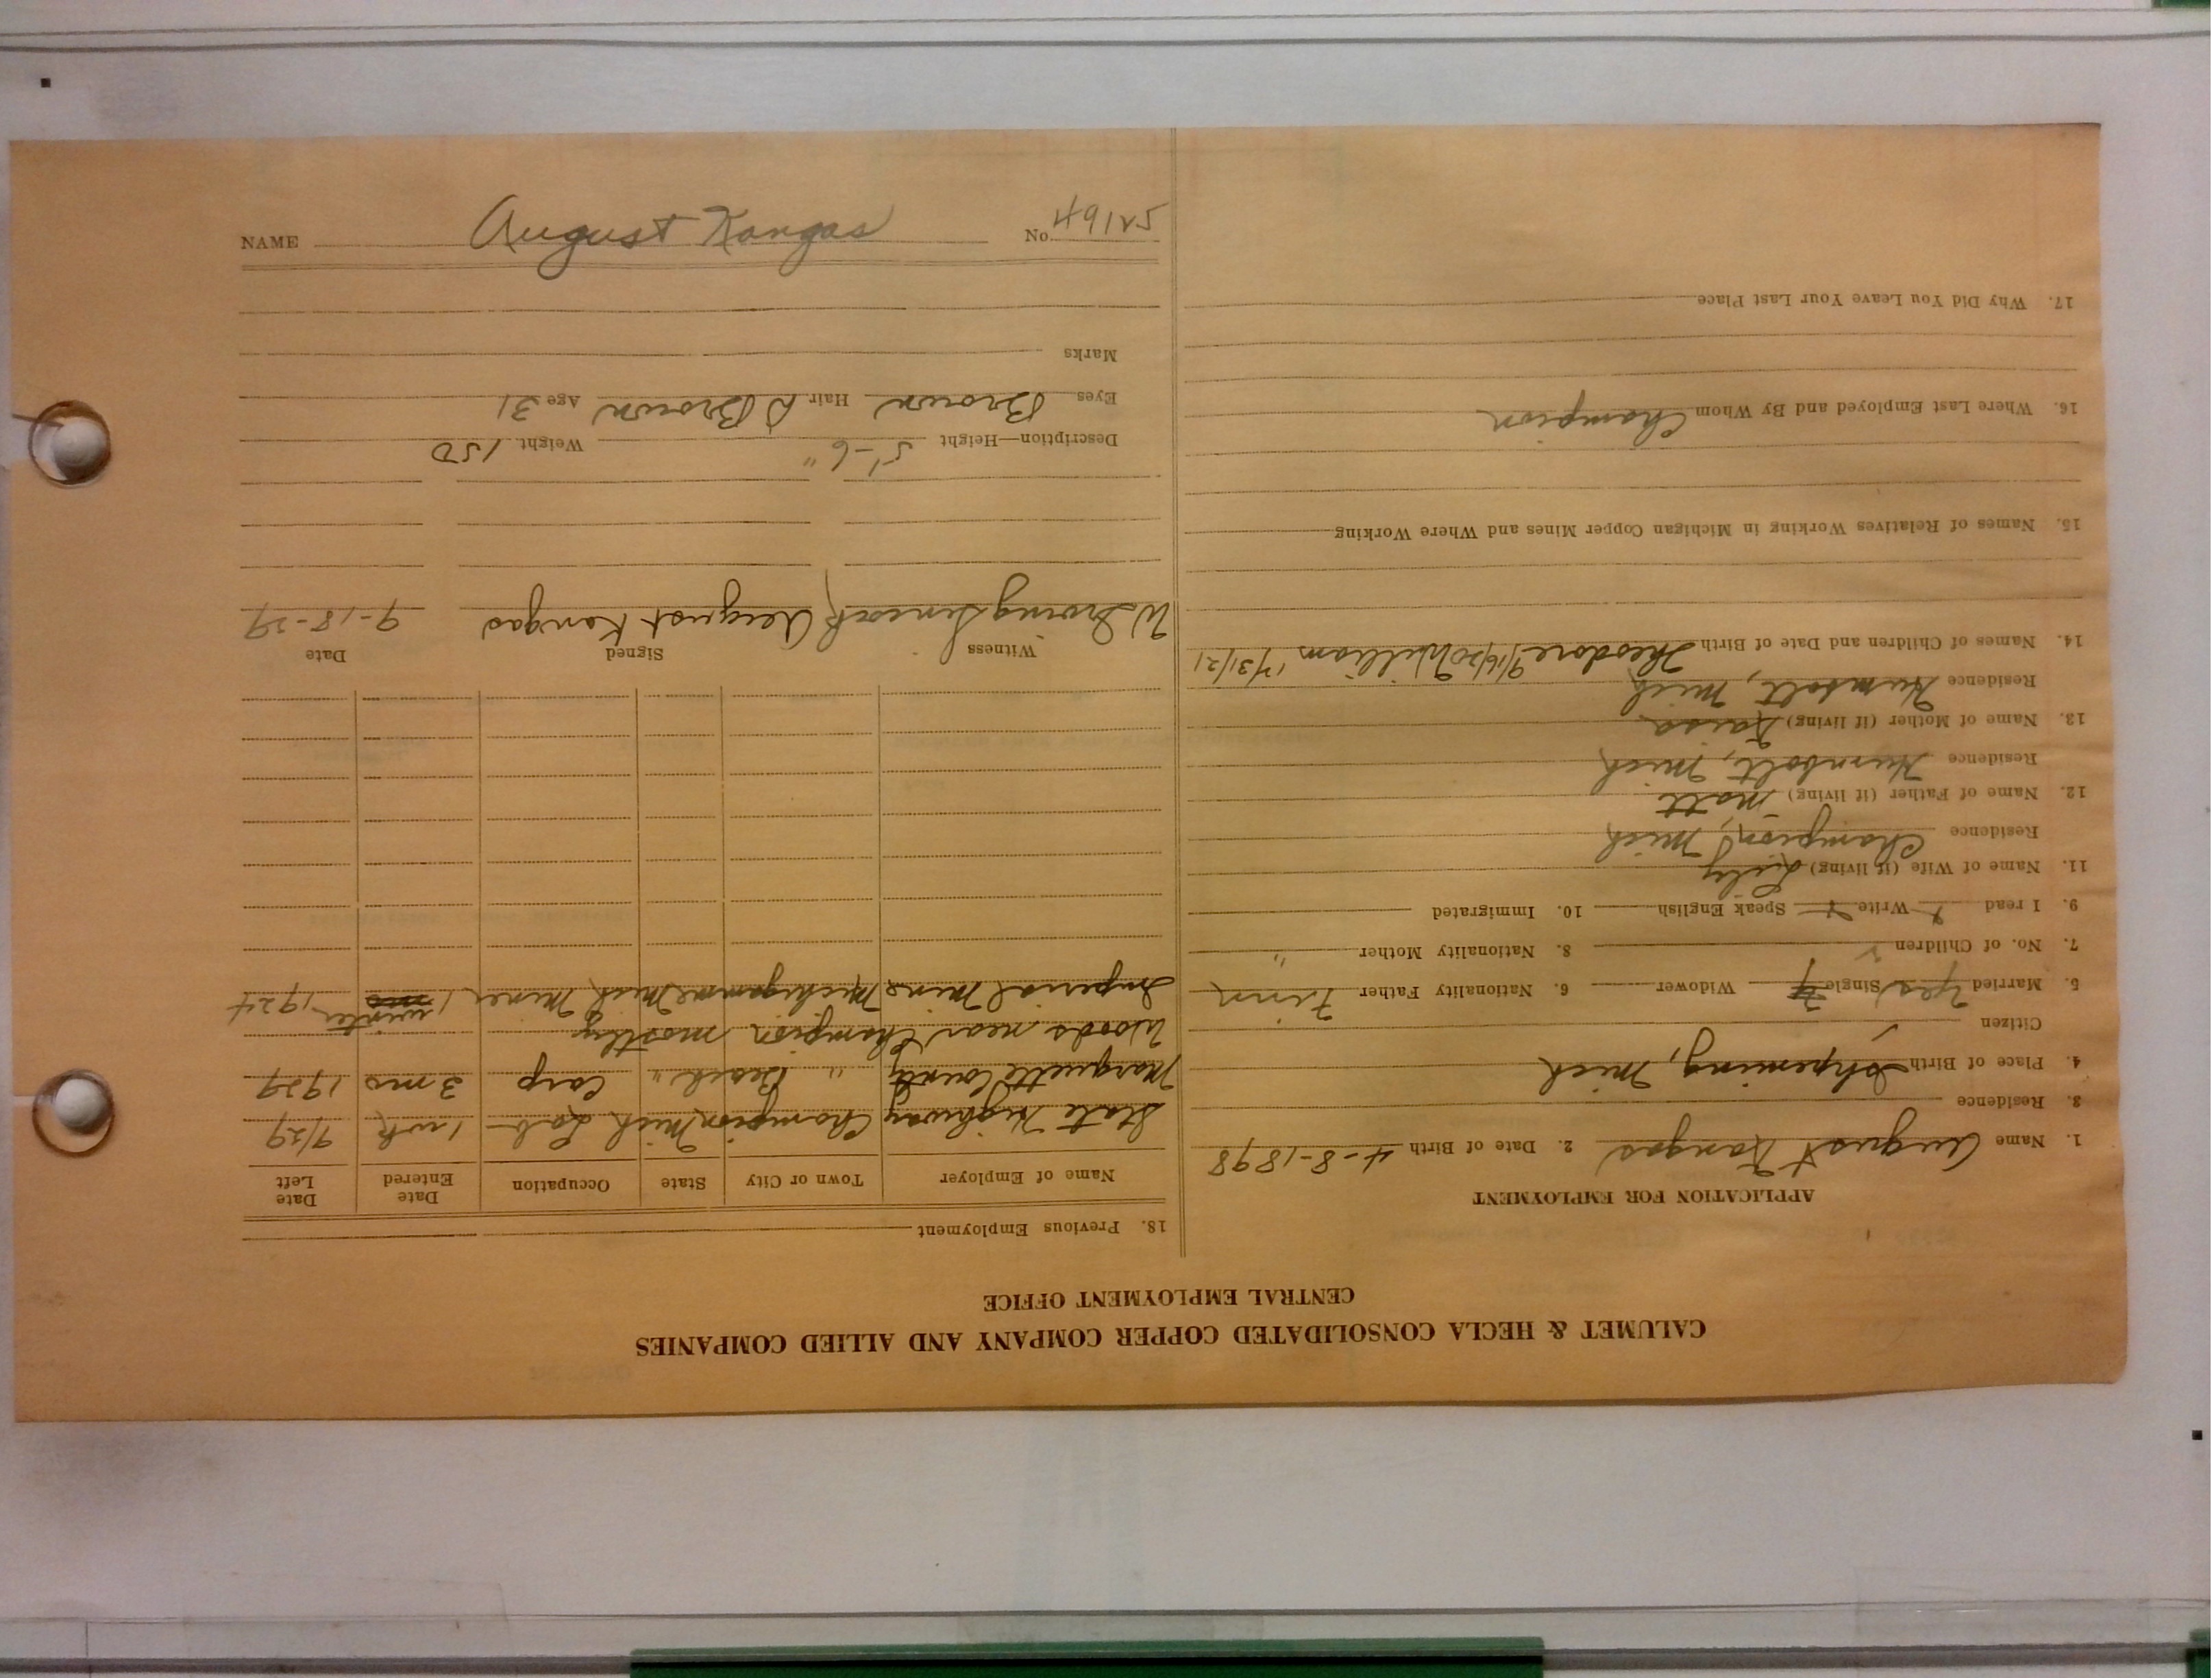 CALUMET & HECLA CONSOLIDATED COPPER COMPANY AND ALLIED COMPANIES
CENTRAL EMPLOYMENT OFFICE
APPLICATION FOR EMPLOYMENT
1. Name August Kangas 2. Date of Birth 4-8-1898
3. Residence
4. Place of Birth Ishpeming, Mich
Citizen
5. Married Yes Single Widower 6. Nationality Father Finn
7. No. of Children 2 8. Nationality Mother "
9. I read Write Speak English 10. Immigrated
11. Name of Wife (if living) Lily
Residence Champion, Mich
12. Name of Father (if living) Matt
Residence Humbolt, Mich
13. Name of Mother (if living) Kaisa
Residence Humbolt, Mich
14. Names of Children and Date of Birth Theodore 9/16/20 William 12/31/21
15. Names of Relatives Working in Michigan Copper Mines and Where Working
16. Where Last Employed and By Whom Champion
17. Why Did You Leave Your Last Place
18. Previous Employment
Name of Employer Town or City State Occupation Date Entered Date Left
State Highway Champion Mich Lab 1 wk 9/29
Marquette County " Beach " Carp 3 mo 1929
Woods near Champion mostly
Imperial Mine Michigamme Mich Miner 1 winter 1924
Witness Signed Date
August Kangas 9-18-29
Description—Height 5'-6" Weight 150
Eyes Brown Hair D Brown Age 31
Marks
NAME August Kangas No. 49125